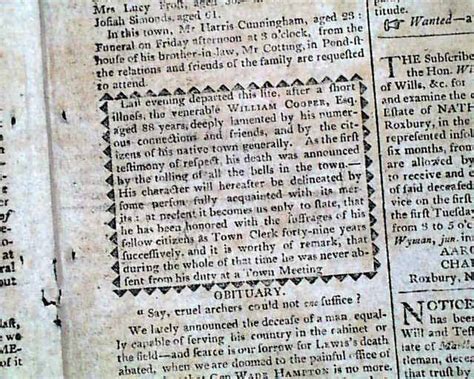 Mrs Lucy Frost,
Josiah Simonds, aged 61.
In this town, Mr Harris Cunningham, aged 23:
Funeral on Friday afternoon at 3 o'clock, from the
house of his brother-in-law, Mr Cotting, in Pond-st
the relations and friends of the family are requested
to attend.
Laſt evening departed this life, after a ſhort
illneſs, the venerable WILLIAM COOPER, Eſq.
aged 88 years, deeply lamented by his nume-
rous connections and friends, and by the cit-
izens of his native town generally. As the firſt
teſtimony of reſpect, his death was announced
by the tolling of all the bells in the town.—
His character will hereafter be delineated by
ſome perſon fully acquainted with its mer-
its: at preſent it becomes us only to ſtate, that
he has been honored with the ſuffrages of his
fellow citizens as Town Clerk forty-nine years
ſucceſſively, and it is worthy of remark, that
during the whole of that time he was never ab-
ſent from his duty at a Town Meeting
OBITUARY.
"Say, cruel archers could not one suffice?"
We lately announced the decease of a man, equal-
ly capable of serving his country in the cabinet or
the field—and scarce is our sorrow for LEWIS's death
abated, when we are doomed to the painful office of
that Gen WADE HAMPTON is no more.
titude.
Wanted—
THE Subscribe
the Hon.
of Wills, &c. for
and examine the c
Estate of NAT
Roxbury, in the
represented insol
six months, from
are allowed
to receive and e
of said deceased
vice on the first
the first Tuesda
from 3 to 5 o'c
Wyman, jun. in
AAR
CHA
Roxbury,
NOTICE
has been
Will and Testa
late of
deceased,
that trust by